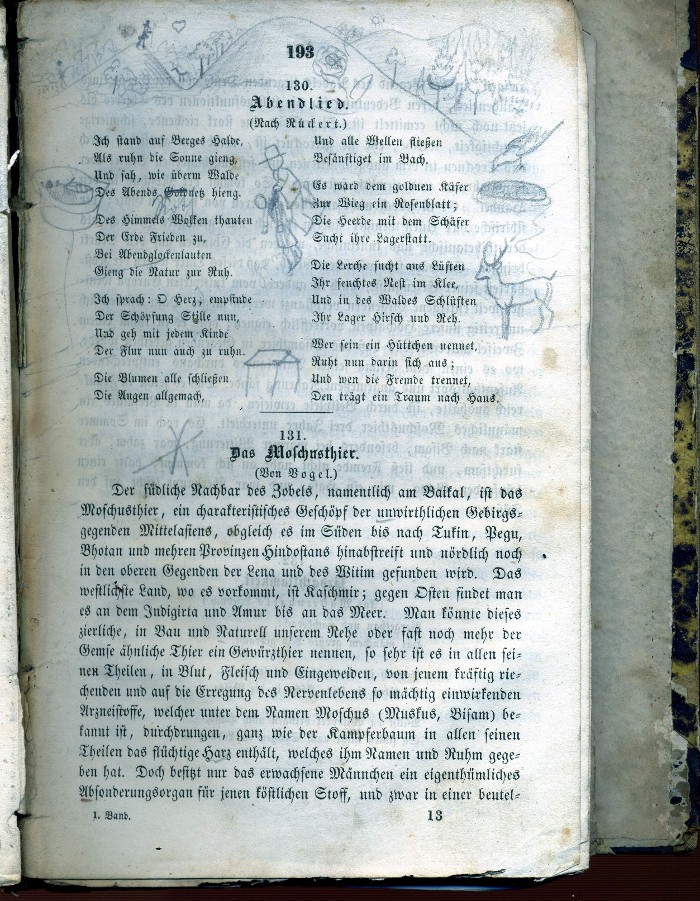 193
130.
Abendlied.
(Nach Rückert.)
Ich stand auf Berges Halde,
Als ruhn die Sonne gieng,
Und sah, wie überm Walde
Des Abends Goldnetz hieng.
Des Himmels Wolken thauten
Der Erde Frieden zu,
Bei Abendglockenlauten
Gieng die Natur zur Ruh.
Ich sprach: O Herz, empfinde
Der Schöpfung Stille nun,
Und geh mit jedem Kinde
Der Flur nun auch zu ruhn.
Die Blumen alle schließen
Die Augen allgemach,
Und alle Wellen fließen
Besänftiget im Bach.
Es ward dem goldnen Käfer
Zur Wieg ein Rosenblatt;
Die Heerde mit dem Schäfer
Sucht ihre Lagerstatt.
Die Lerche sucht aus Lüften
Ihr feuchtes Nest im Klee,
Und in des Waldes Schlüften
Ihr Lager Hirsch und Reh.
Wer sein ein Hüttchen nennet,
Ruht nun darin sich aus;
Und wen die Fremde trennet,
Den trägt ein Traum nach Haus.
131.
Das Moschusthier.
(Von Vogel.)
Der südliche Nachbar des Zobels, namentlich am Baikal, ist das
Moschusthier, ein charakteristisches Geschöpf der unwirthlichen Gebirgs-
gegenden Mittelasiens, obgleich es im Süden bis nach Tukin, Pegu,
Bhotan und mehren Provinzen Hindostans hinabstreift und nördlich noch
in den oberen Gegenden der Lena und des Witim gefunden wird. Das
westlichste Land, wo es vorkommt, ist Kaschmir; gegen Osten findet man
es an dem Indigirta und Amur bis an das Meer. Man könnte dieses
zierliche, in Bau und Naturell unserem Rehe oder fast noch mehr der
Gemse ähnliche Thier ein Gewürzthier nennen, so sehr ist es in allen sei-
nen Theilen, in Blut, Fleisch und Eingeweiden, von jenem kräftig rie-
chenden und auf die Erregung des Nervenlebens so mächtig einwirkenden
Arzneistoffe, welcher unter dem Namen Moschus (Muskus, Bisam) be-
kannt ist, durchdrungen, ganz wie der Kampferbaum in allen seinen
Theilen das flüchtige Harz enthält, welches ihm Namen und Ruhm gege-
ben hat. Doch besitzt nur das erwachsene Männchen ein eigenthümliches
Absonderungsorgan für jenen köstlichen Stoff, und zwar in einer beutel-
1. Band.
13